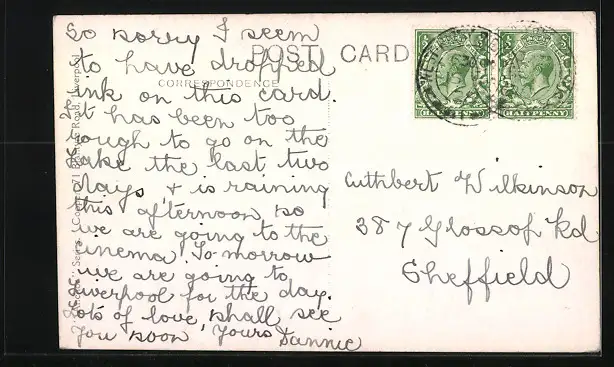 So sorry I seem
to have dropped
ink on this card.
It has been too
rough to go on the
Lake the last two
days, & is raining
this afternoon so
we are going to the
cinema. To-morrow
we are going to
Liverpool for the day.
Lots of love, shall see
you soon, Yours Dannie
POST CARD
CORRESPONDENCE
Cuthbert Wilkinson
387 Glossop Rd
Sheffield
HALFPENNY
HALFPENNY
Road, Liverpool